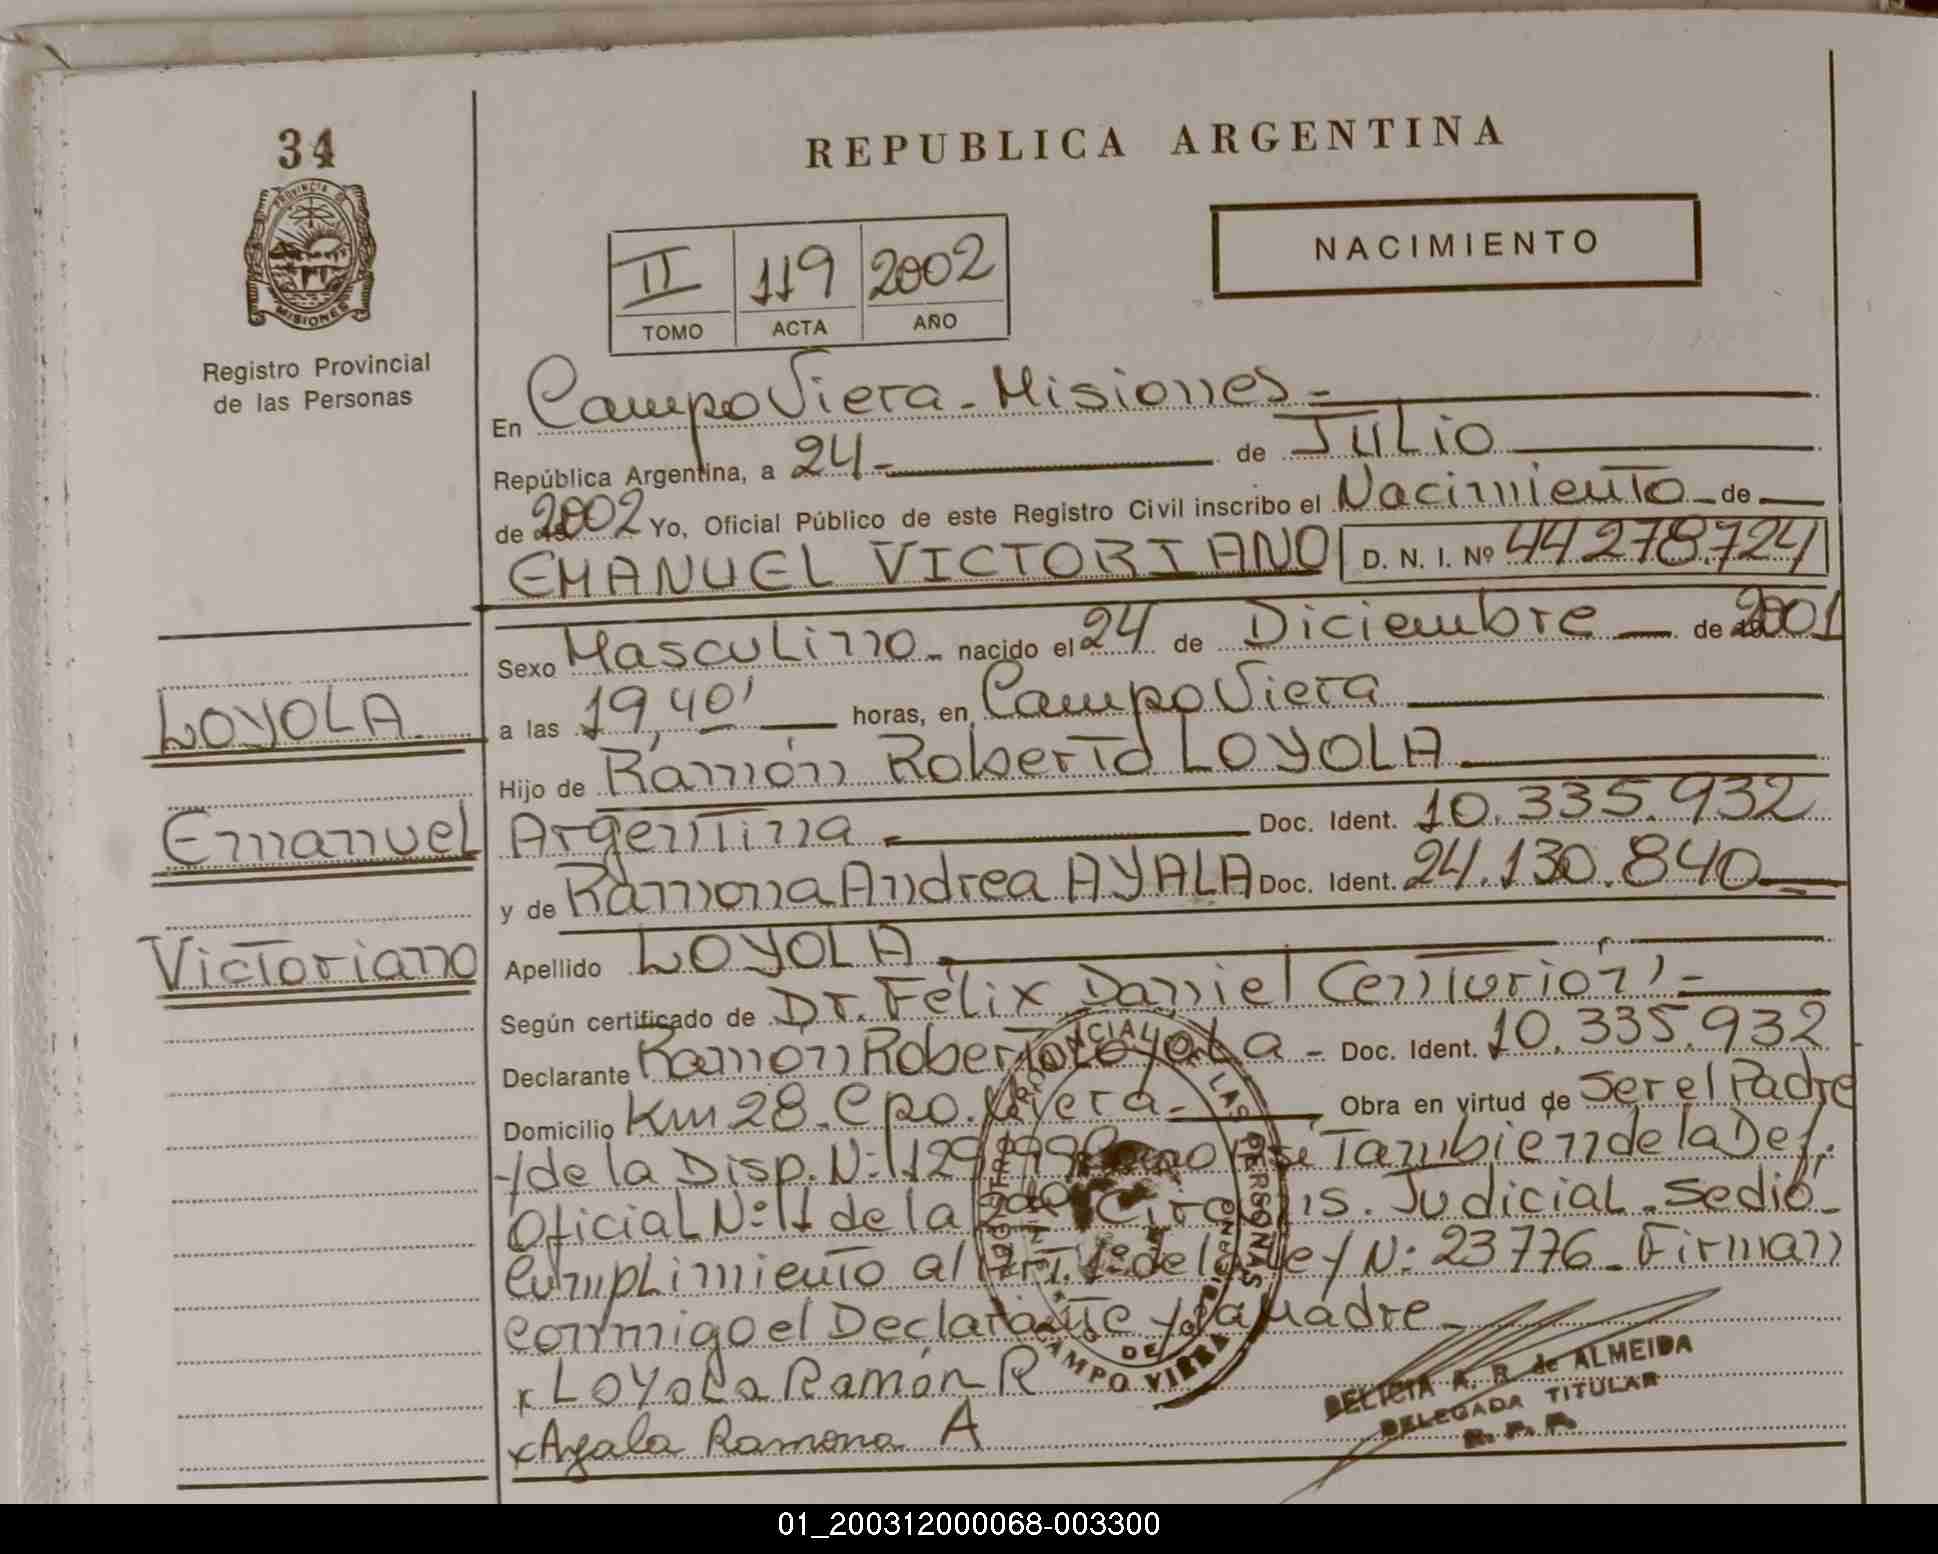 34
PROVINCIA DE
MISIONES
Registro Provincial
de las Personas
REPUBLICA ARGENTINA
II 119 2002
TOMO ACTA AÑO
NACIMIENTO
En Campo Viera - Misiones -
República Argentina, a 24 - de Julio
de 2002 Yo, Oficial Público de este Registro Civil inscribo el Nacimiento - de
EMANUEL VICTORIANO D. N. I. Nº 44.278.724
Sexo Masculino - nacido el 24 de Diciembre de 2001
a las 19,40' horas, en Campo Viera
Hijo de Ramón Roberto LOYOLA
Argentina - Doc. Ident. 10.335.932
y de Ramona Andrea AYALA Doc. Ident. 24.130.840
Apellido LOYOLA
Según certificado de Dr. Félix Daniel Centurión -
Declarante Ramón Roberto Loyola - Doc. Ident. 10.335.932
Domicilio Km 28 - Cpo. Viera - Obra en virtud de Ser el Padre
y de la Disp. Nº: 129 Como Así También de la Def.
Oficial Nº: 1 de la Judicial - Se dió
Cumplimiento al Art. 1º de la Ley Nº: 23776 - Firman
conmigo el Declarante y la Madre -
x Loyola Ramón R
x Ayala Ramona A
LOYOLA
Emanuel
Victoriano
DE LAS PERSONAS
DE
CAMPO VIERA
DELICIA A. R. de ALMEIDA
DELEGADA TITULAR
R. P. P.
01_200312000068-003300